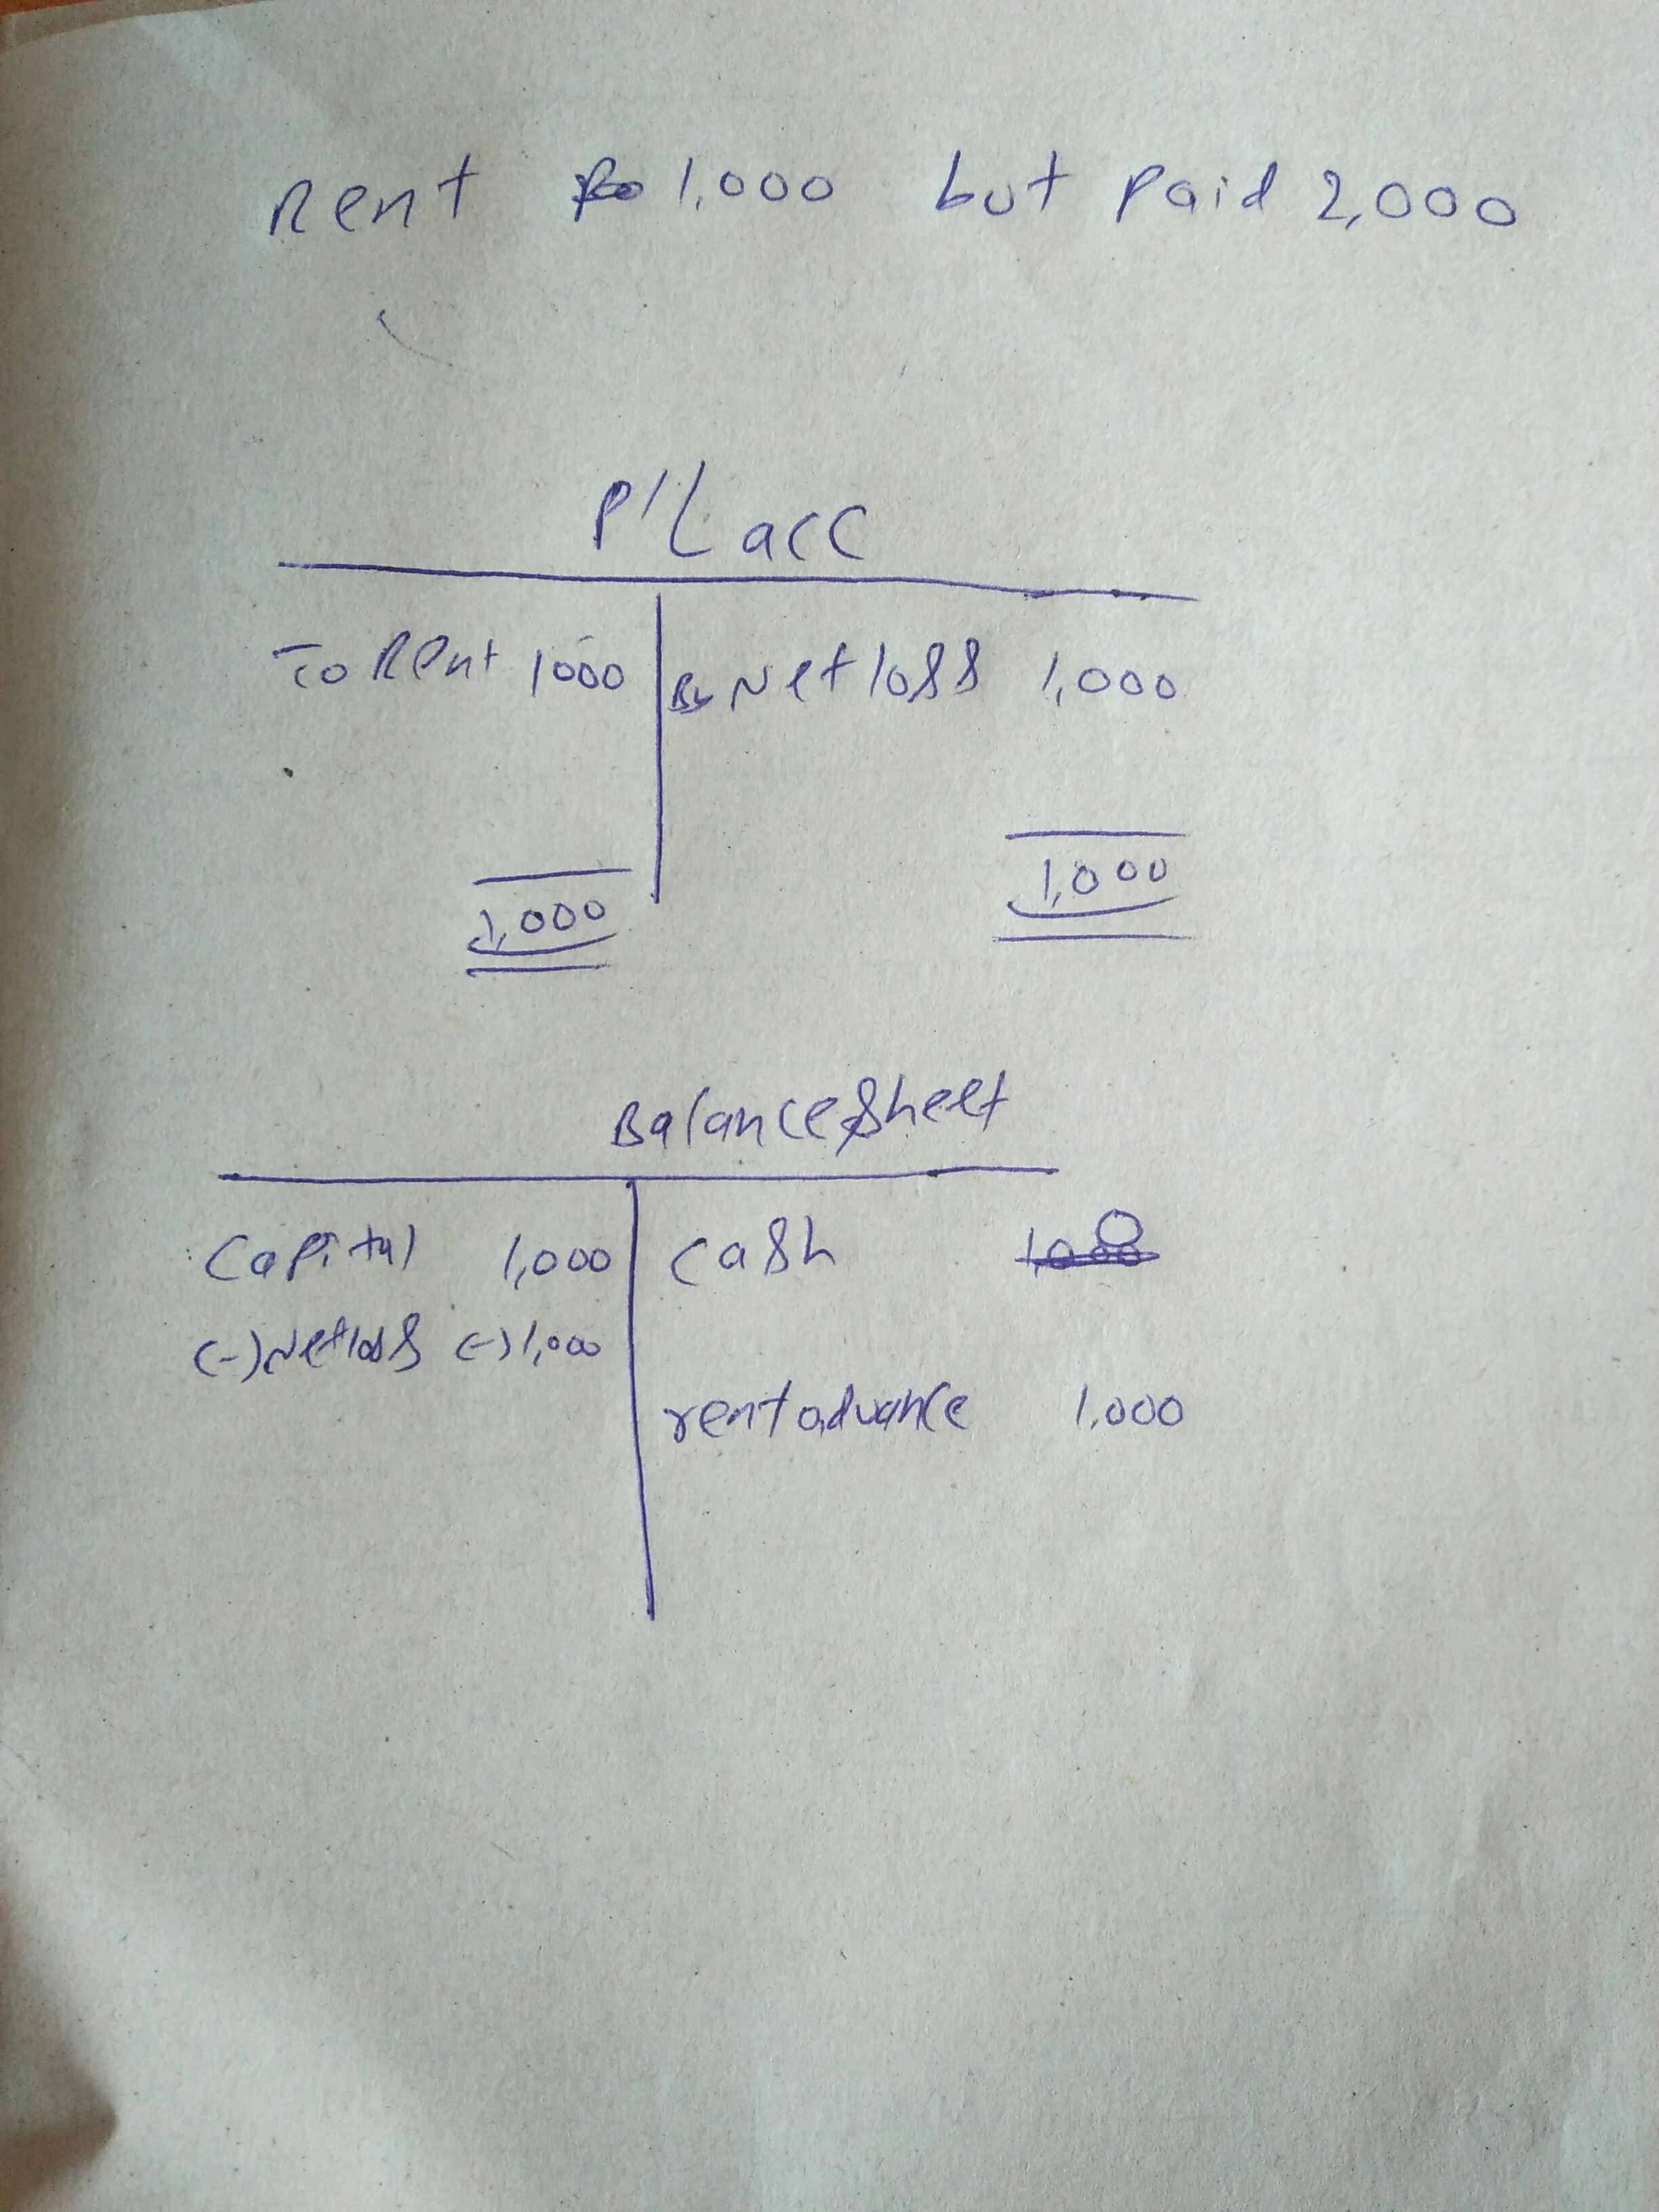 Rent 1,000 but paid 2,000
P/L acc
To Rent 1000 By Net loss 1,000
1,000 1,000
Balance sheet
Capital 1,000 cash 1,000 0
(-) Net loss (-) 1,000
rent advance 1,000